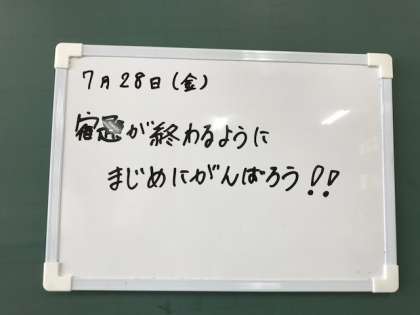 7月28日(金)
宿題が終わるように
まじめにがんばろう!!